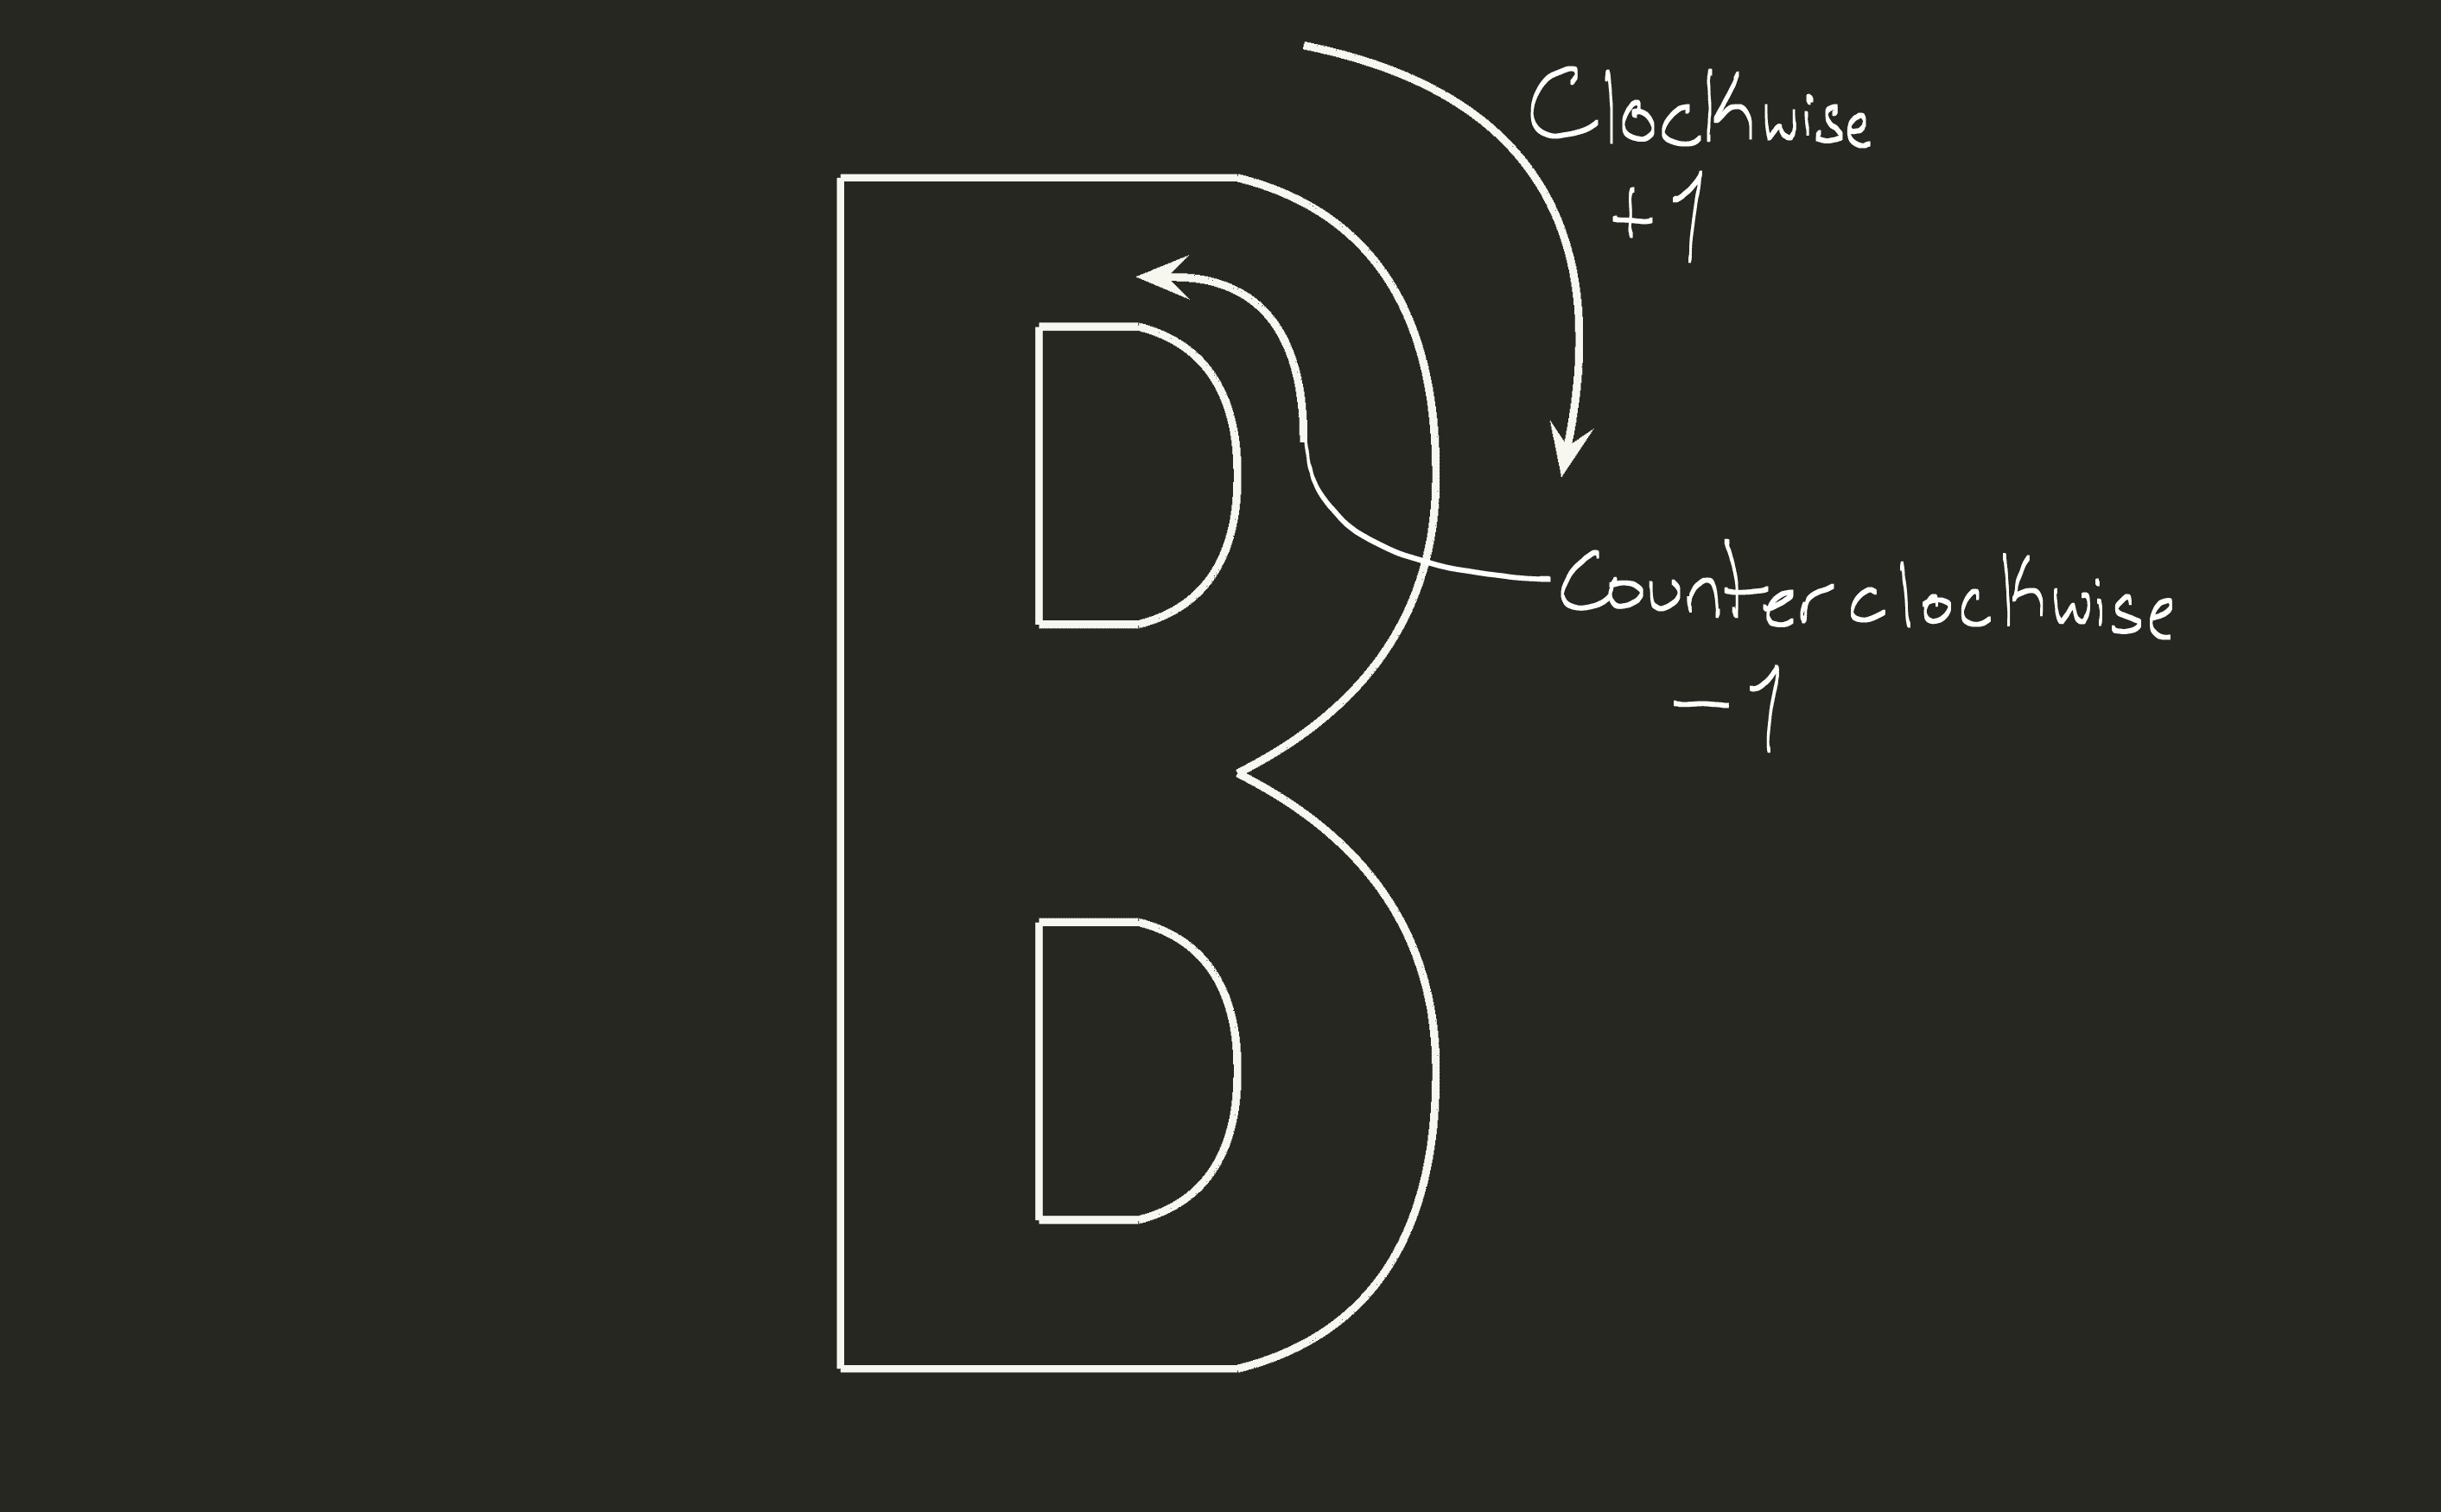 Clockwise
+1
B
Counterclockwise
-1